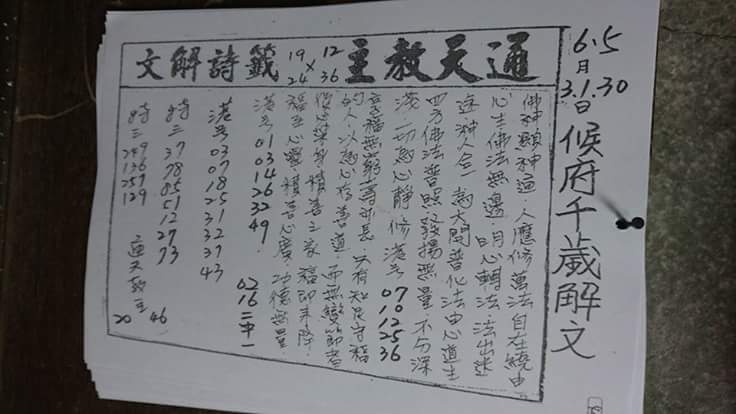 6.5
月
3.1.30
日
候府千歲解文
通天教主 12 36 × 19 24 籤詩解文
佛神顯神通.人應修萬法自在繞由
心生佛法無邊 明心轉法法出迷
神人合一 大開普化法由心道生
四方佛法普照發揚無量.不分深
淺一切慈心靜修 港号 07 10 12 25 36
享福無窮壽永長 只有知足守福
的人以慈心存善道.而無變節者
積善之家福即来降.
福至心靈積善心慶功德無量.
港号 01 03 14 26 32 49 02 16 二中一
港号 03 07 18 25 31 32 37 43
特三 37 78 05 51 12 27 73
特三 249 136 257 129 通天教主 20 46